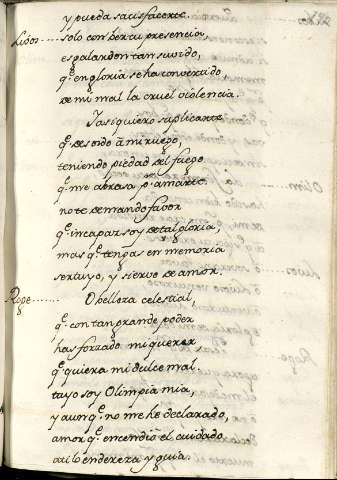 y pueda satisfacerte.
Lidos...... solo con ver tu presencia,
es galardon tan suvido,
q.e en gloria se ha convertido
de mi mal la cruel violencia.
Y asi quiero suplicarte
q.e des oido â mi ruego,
teniendo piedad del fuego
q.e me abrasa p.r amarte.
no te demando favor
q.e incapaz soy de tal gloria,
mas q.e tengas en memoria
ser tuyo, y siervo de amor.
Roge....... O belleza celestial,
q.e con tan grande poder
has forzado mi querer
q.e quiera mi dulce mal.
tuyo soy Olimpia mia,
y aunq.e no me he declarado,
amor q.e encendio el cuidado
a ti lo endereza y guia.